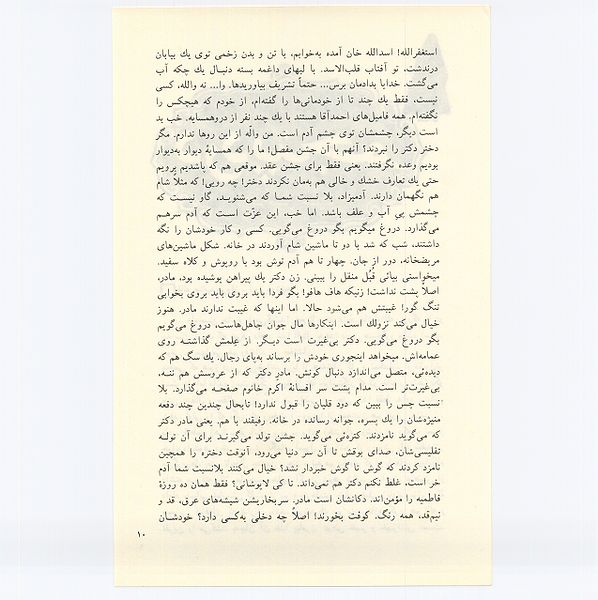 استغفرالله! اسدالله خان آمده به‌خوابم، با تن و بدن زخمی توی یك بیابان
درندشت، تو آفتاب قلب‌الاسد. با لبهای داغمه بسته دنبال یك چکه آب
می‌گشت. خدایا بدادمان برس... حتماً تشریف بیاوریدها. وا... نه والله، کسی
نیست، فقط یك چند تا از خودمانی‌ها را گفته‌ام، از خودم که هیچکس را
نگفته‌ام. همه فامیل‌های احمدآقا هستند با یك چند نفر از دروهمسایه. خب بد
است دیگر، چشمشان توی چشم آدم است. من والله از این روها ندارم. مگر
دختر دکتر را نبردند؟ آنهم با آن جشن مفصل! ما را که همسایهٔ دیوار به‌دیوار
بودیم وعده نگرفتند. یعنی فقط برای جشن عقد. موقعی هم که پاشدیم برویم
حتی یك تعارف خشك و خالی هم به‌مان نکردند دختر! چه رویی! که مثلاً شام
هم نگهمان دارند. آدمیزاد، بلا نسبت شما که می‌شنوید، گاو نیست که
چشمش پی آب و علف باشد. اما خب، این عزّت است که آدم سرهم
می‌گذارد. دروغ میگویم بگو دروغ می‌گویی. کسی و کار خودشان را نگه
داشتند، شب که شد با دو تا ماشین شام آوردند در خانه. شکل ماشین‌های
مریضخانه، دور از جان. چهار تا هم آدم توش بود با روپوش و کلاه سفید.
میخواستی بیائی قُبل منقل را ببینی. زن دکتر یك پیراهن پوشیده بود، مادر،
اصلاً پشت نداشت! زنیکه هاف هافو! بگو فردا باید بروی باید بروی بخوابی
تنگ گور! غیبتش هم می‌شود حالا. اما اینها که غیبت ندارند مادر. هنوز
خیال می‌کند نزولك است. اینکارها مال جوان جاهل‌هاست، دروغ می‌گویم
بگو دروغ می‌گویی. دکتر بی‌غیرت است دیگر. از عِلمش گذاشتـه روی
عمامه‌اش. میخواهد اینجوری خودش را برساند به‌پای رجال. یك سگ هم که
دیده‌ئی، متصل می‌اندازد دنبال کونش. مادر دکتر که از عروسش هم ننـه،
بی‌غیرت‌تر است. مدام پشت سر افسانهٔ اکرم خانوم صفحـه می‌گذارد. بلا
نسبت جس را ببین که دود قلیان را قبول ندارد! تابحال چندین چند دفعه
منیژه‌شان را یك پسره، جوانه رسانده در خانه. رفیقند با هم. یعنی مادر دکتر
که می‌گوید نامزدند. کتره‌ئی می‌گوید. جشن تولد می‌گیرنـد برای آن تولـه
تفلیسی‌شان، صدای بوقش تا آن سر دنیا می‌رود، آنوقت دختره را همچین
نامزد کردند که گوش تا گوش خبردار نشد؟ خیال می‌کنند بلانسبت شما آدم
خر است، غلط نکنم دکتر هم نمی‌داند. تا کی لاپوشانی؟ فقط همان ده روزهٔ
فاطمیه را مؤمن‌اند. دکانشان است مادر. سربخاریشن شیشه‌های عرق، قد و
نیم‌قد، همه رنگ. کوفت بخورند! اصلاً چه دخلی به‌کسی دارد؟ خودشـان
۱۰